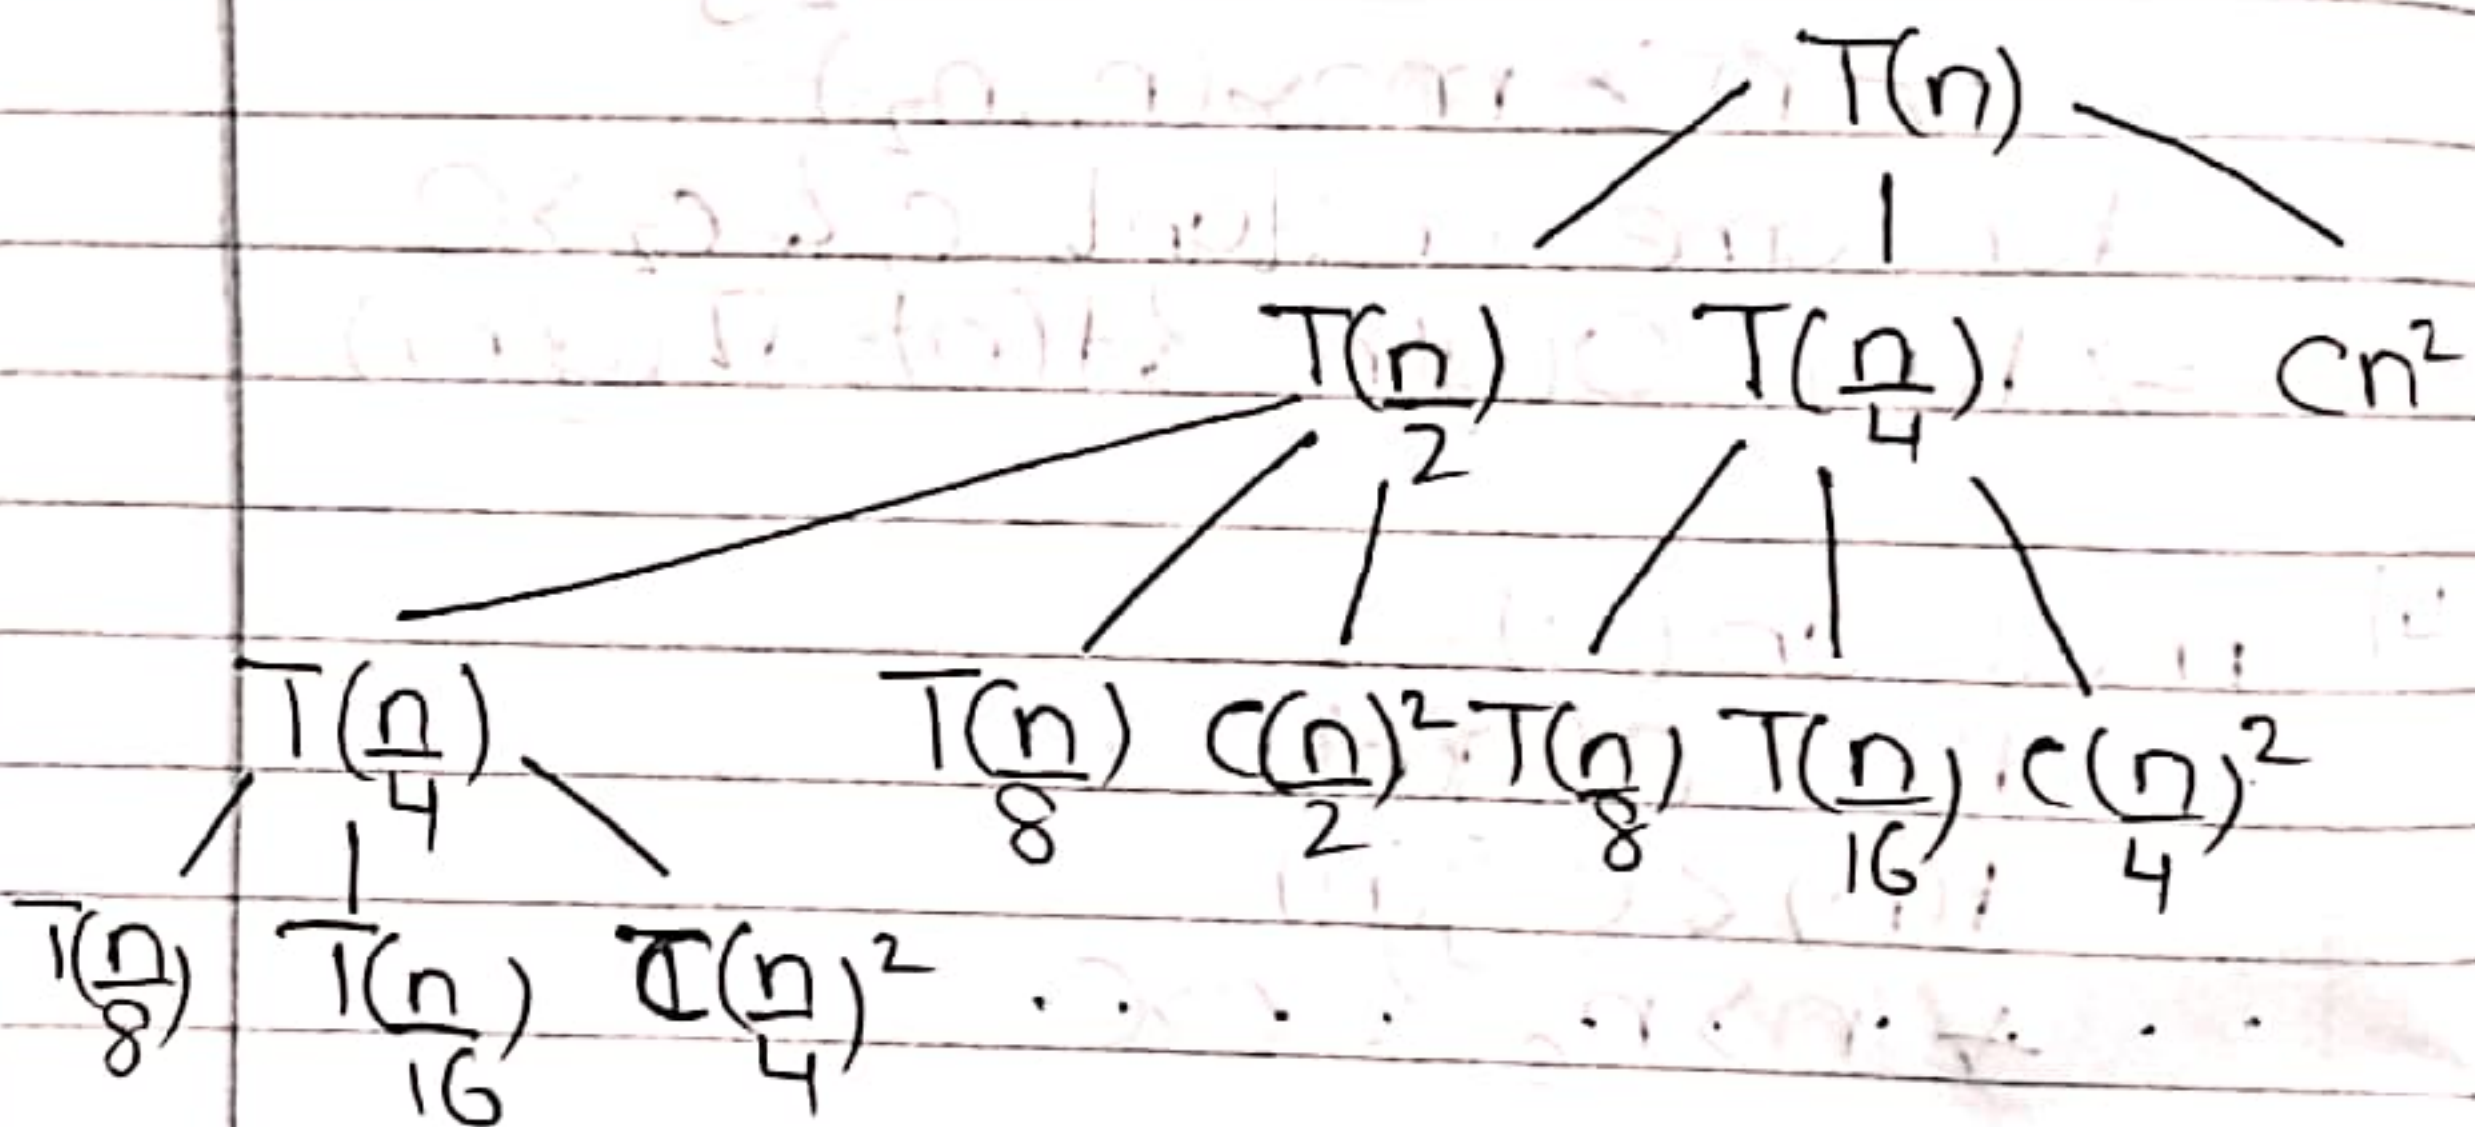 T(n)
T(n/2) T(n/4) Cn²
T(n/4) T(n/8) C(n/2)² T(n/8) T(n/16) C(n/4)²
T(n/8) T(n/16) C(n/4)² . . . . . . . . . .